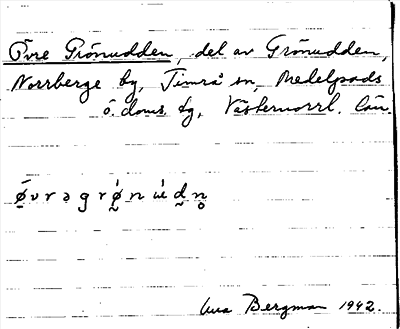 Övre Grönudden, del av Grönudden,
Norrberge by, Timrå sn, Medelpads
ö. doms. tg, Västernorrl. län.
Bergman 1942.